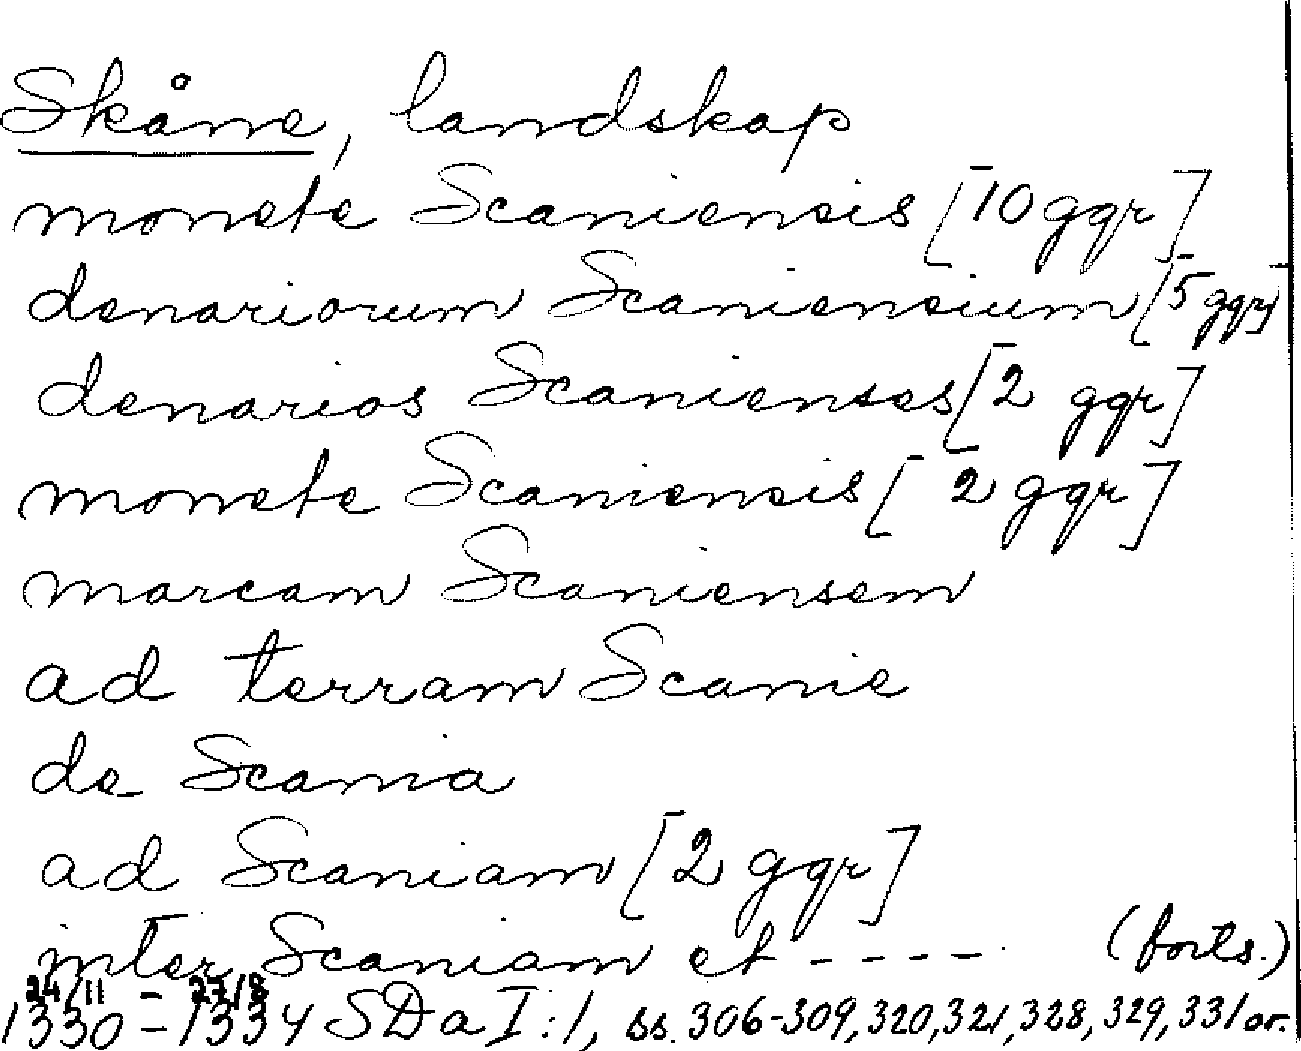 Skåne, landskap
monete Scaniensis [10 ggr]
denariorum Scaniensium [5 ggr]
denarios Scanienses [2 ggr]
monete Scaniensis [2 ggr]
marcam Scaniensem
ad terram Scanie
de Scania
ad Scaniam [2 ggr]
inter Scaniam et ---- (forts.)
24/11 - 27/8
1330-1334 SDa I:1, ss. 306-309, 320, 321, 328, 329, 331 or.